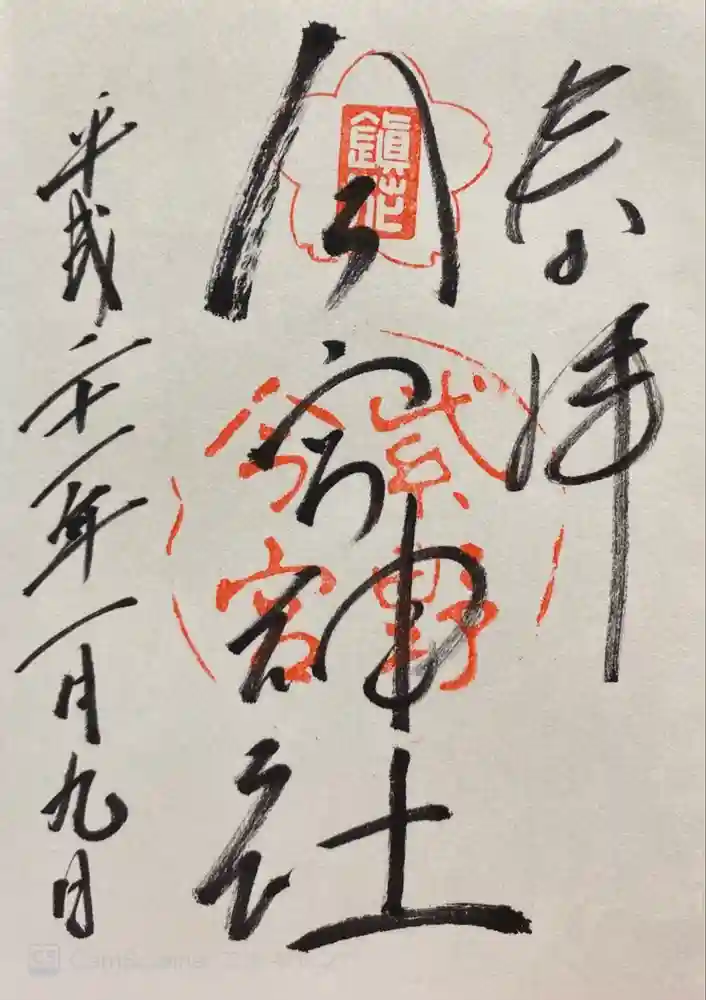 奉拝
鎭花
今宮神社
紫野
今宮
平成二十一年一月九日
CS CamScanner